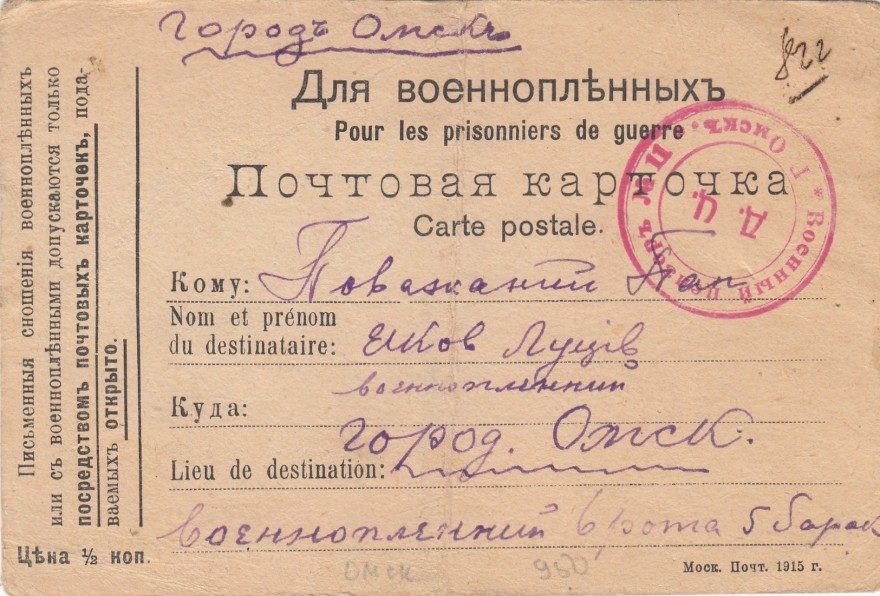 Городъ Омскъ
822
Для военноплѣнныхъ
Pour les prisonniers de guerre
Почтовая карточка
Carte postale.
Г. Омскъ. * Военный Цензоръ № П
Д. Ц.
Кому: Поважаний Пан
Nom et prénom
du destinataire: Яков Луців
военнопленний
Куда: город. Омск.
Lieu de destination:
военнопленний 6 рота 5 барак
омск 950
Моск. Почт. 1915 г.
Письменныя сношенія военноплѣнныхъ
или съ военноплѣнными допускаются только
посредствомъ почтовыхъ карточекъ, пода-
ваемыхъ открыто.
Цѣна ½ коп.